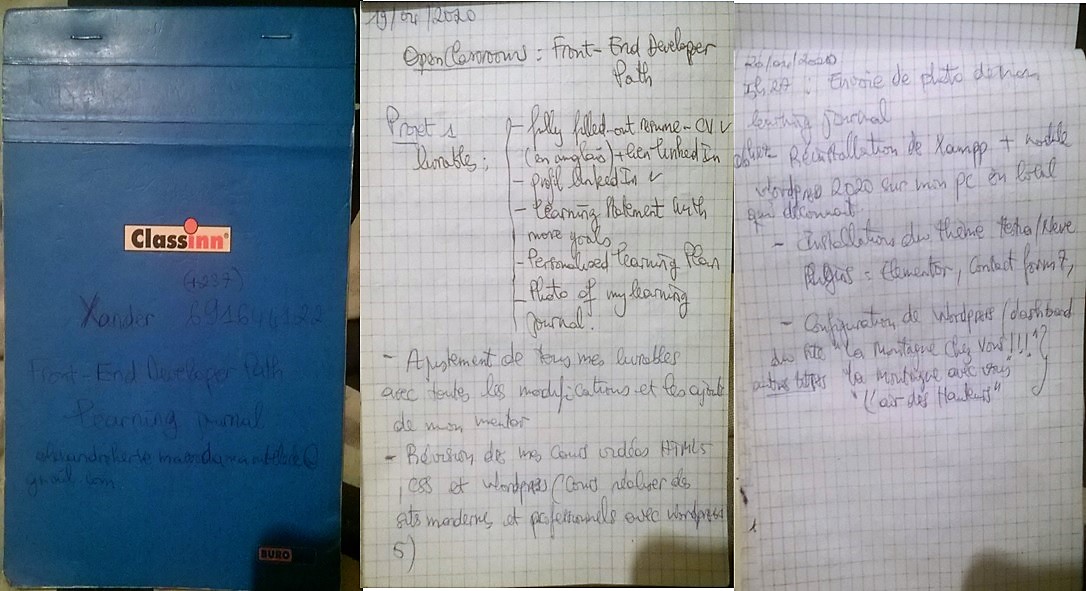 Classinn
(+237)
Xander 691644122
Front-End Developer Path
Learning journal
gmail.com
BURO
19/04/2020
OpenClassrooms : Front-End Developer
Path
Projet 1
livrables :
- fully filled-out resume - CV ✓
(en anglais) + lien linked In
- profil linked In ✓
- Learning statement with
more goals
- Personalized Learning Plan
- Photo of my learning
journal.
- Ajustement de tous mes livrables
avec toutes les modifications et les ajouts
de mon mentor
- Révision des mes cours vidéos HTML5
, CSS et Wordpress (Cours réaliser des
sites modernes et professionnels avec wordpress
5)
20/04/2020
: Envoie de photo de mon
learning journal
Réinstallation de Xampp + module
Wordpress 2020 sur mon pc en local
qui déconnait
- Installation du thème Hestia/Neve
Plugins = Elementor, Contact form 7,
- Configuration de Wordpress / dashboard
du site "La montagne chez vous !!!"?
autres titres "la montagne avec vous"
"L'air des Hauteurs"
1